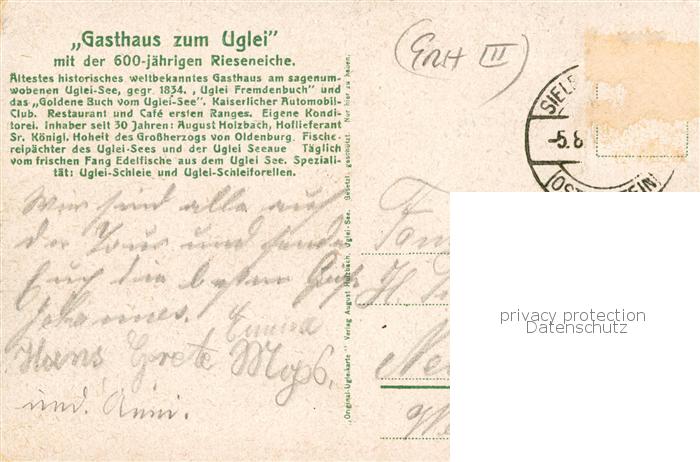 „Gasthaus zum Uglei"
mit der 600-jährigen Rieseneiche.
Ältestes historisches weltbekanntes Gasthaus am sagenum-
wobenen Uglei-See, gegr. 1834. „Uglei Fremdenbuch" und
das „Goldene Buch vom Uglei-See". Kaiserlicher Automobil-
Club. Restaurant und Café ersten Ranges. Eigene Kondi-
torei. Inhaber seit 30 Jahren: August Holzbach, Hoflieferant
Sr. Königl. Hoheit des Großherzogs von Oldenburg. Fische-
reipächter des Uglei-Sees und der Uglei Seeaue Täglich
vom frischen Fang Edelfische aus dem Uglei See. Speziali-
tät: Uglei-Schleie und Uglei-Schleiforellen.
Wir sind alle auf
der Tour und senden
Euch die besten Grüße
Johannes. Emma
Hans Grete
und. Anni.
„Original-Uglei-karte" Verlag August Holzbach, Uglei-See. Gesetzl. geschützt. Nur hier zu haben.
III
SIEL
-5.8
OST
EIN
privacy protection
Datenschutz